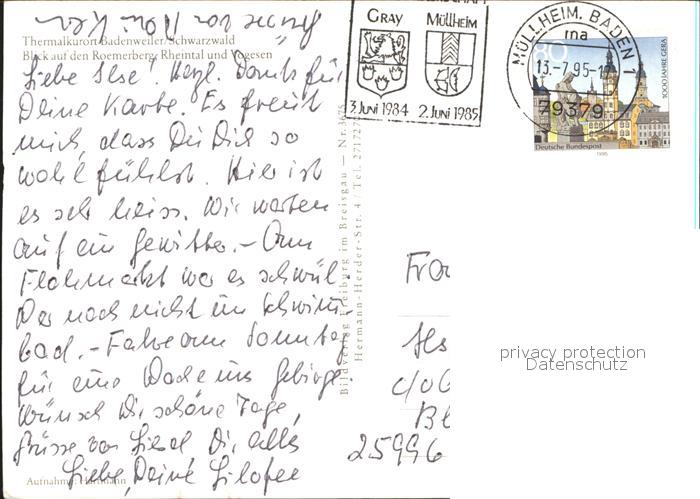 Thermalkurort Badenweiler/Schwarzwald
Blick auf den Roemerberg, Rheintal und Vogesen
Liebe Ilse! Herzl. Dank für
Deine Karte. Es freut
mich, dass Du Dich so
wohl fühlst. Hier ist
es sehr heiss. Wir warten
auf ein Gewitter. – Am
Flohmarkt war es schwül.
War noch nicht im Schwimm-
bad. – Fahre am Sonntag
für eine Woche ins Gebirge.
Wünsch Dir schöne Tage,
Grüsse von Liesel Dir, alles
Liebe, Deine Lilofee
Aufnahme: Hartmann
Bildverlag Freiburg im Breisgau — Nr.
Hermann-Herder-Str. 4 / Tel.
GRAY MÜLLHEIM
3. JUNI 1984 2. JUNI 1985
MÜLLHEIM, BADEN 1
ma
13.-7.95-1
79379
80
1000 JAHRE GERA
Deutsche Bundespost
1995
Fra
c/o
Bl
25996
privacy protection
Datenschutz